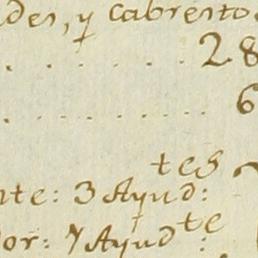 des, y cabresto
. . . . . . . 28
. . . . . . . . . 6
nte: 3 Ayud:tes
or: 7 Ayud:te